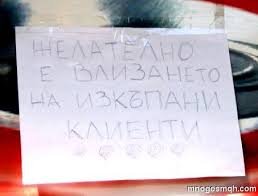 ЖЕЛАТЕЛНО
Е ВЛИЗАНЕТО
НА ИЗКЪПАНИ
КЛИЕНТИ
mnogosmqh.com